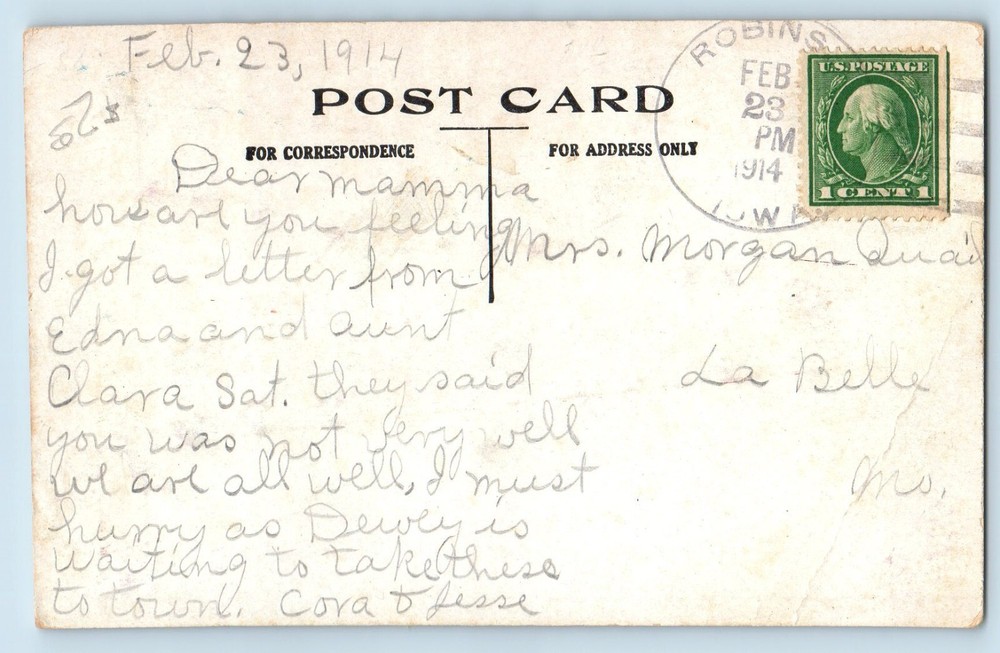 Feb. 23, 1914
POST CARD
FOR CORRESPONDENCE
FOR ADDRESS ONLY
ROBINS
FEB
23
PM
1914
IOWA
U.S. POSTAGE
1 CENT 1
Dear mamma
how are you feeling
I got a letter from
Edna and aunt
Clara Sat. they said
you was not very well
we are all well, I must
hurry as Dewey is
waiting to take these
to town. Cora & Jesse
Mrs. Morgan Quail
La Belle
Mo.